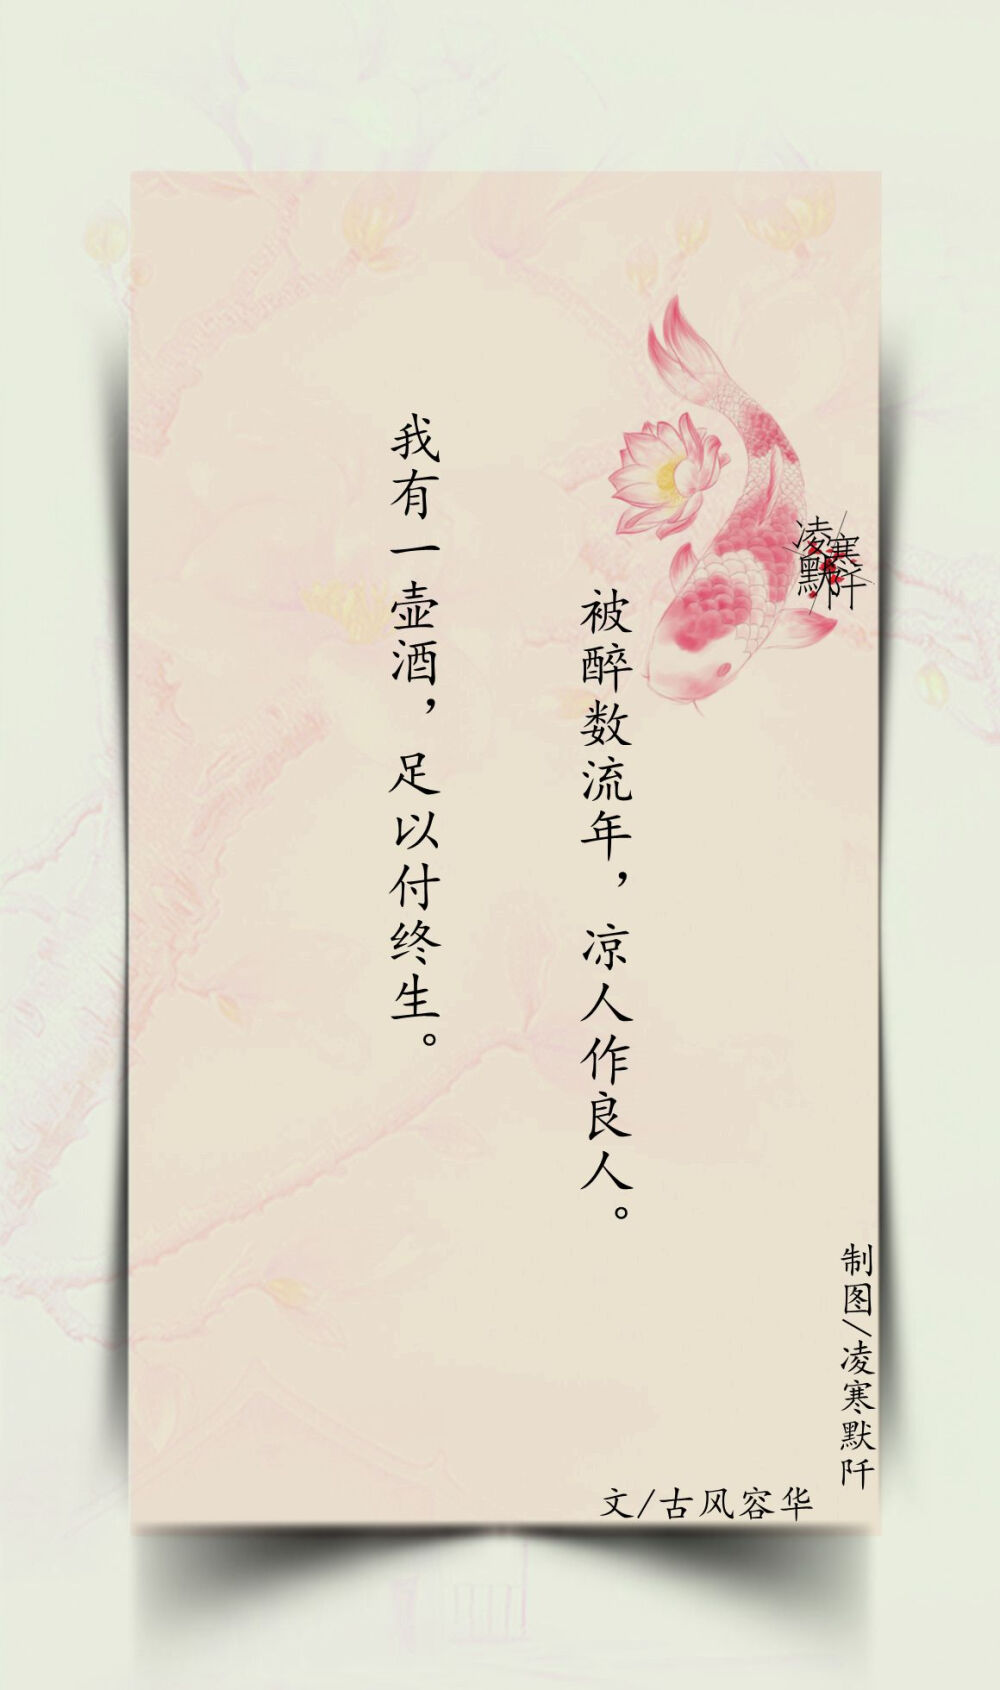 被醉数流年，凉人作良人。
我有一壶酒，足以付终生。
凌寒默阡
制图/凌寒默阡
文/古风容华